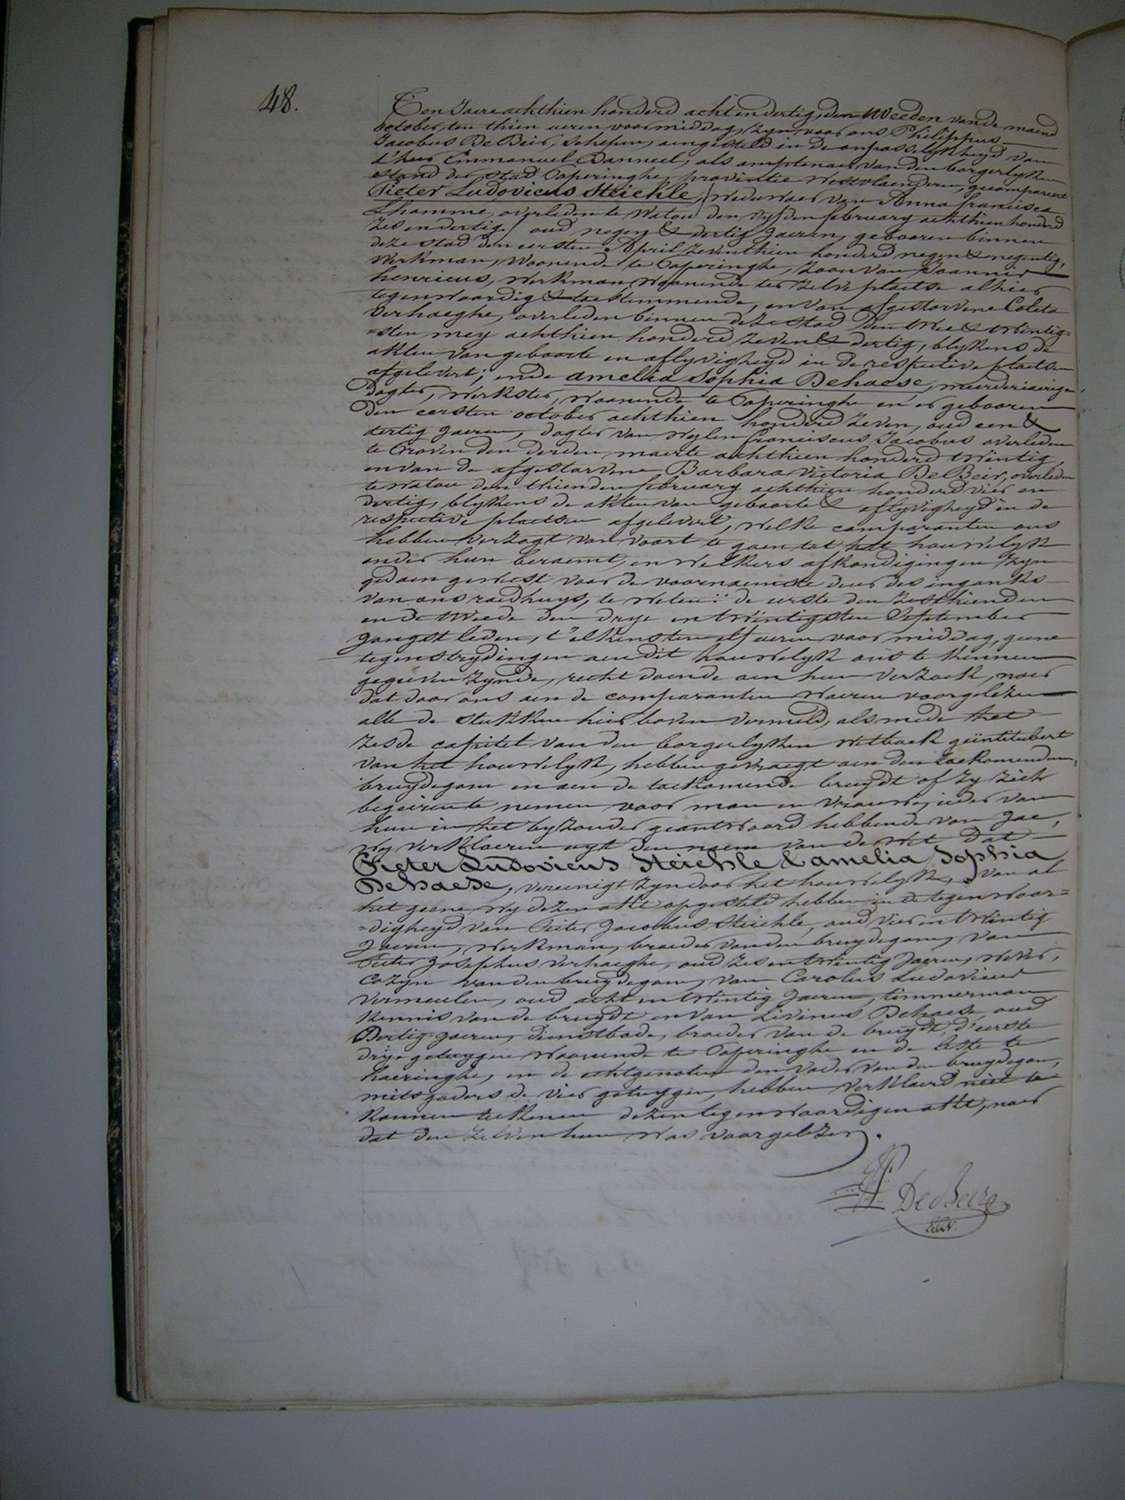 48.
Ten Jaere achthien honderd acht en dertig, den tweeden van de maend
october, ten thien uren voormiddag, zyn voor ons Philippus
Jacobus De Beir, schepen, aengesteld in de onpasselykheyd van
d'heer Emmanuel Banneel, als amptenaer van den borgerlyken
stand der stad Poperinghe, provintie Westvlaenderen, gecompareert
Pieter Ludovicus Steichle, weduwaer van Anna francisca
Lhomme, overleden te Watou den vyfden february achthien honderd
zes en dertig / oud negen & dertig Jaeren, gebooren binnen
deze stad den eersten April zeventhien honderd negen & negentig,
werkman, woonende te Poperinghe, zoon van Joannes
henricus, werkman, woonende ter zelve plaetse alhier
tegenwoordig & toestemmende, en van afgestorvene Coleta
Verhaeghe, overleden binnen deze stad den twee & twintig-
-sten mey achthien honderd zeven & dertig, blykens de
akten van geboorte en aflyvigheyd in de respective plaetsen
afgelevert; ende amelia Sophia Dehaese, meerderjarige
dogter, werkster, woonende te Poperinghe en er gebooren
den eersten october achthien honderd zeven, oud een &
dertig Jaeren, dogter van wylen franciscus Jacobus overleden
te Proven den derden maerte achthien honderd twintig
en van de afgestorvene Barbara Victoria De Beir, overleden
te watou den thienden february achthien honderd vier en
dertig, blykens de akten van geboorte & aflyvigheyd in de
respective plaetsen afgelevert, welke comparanten ons
hebben verzogt van voort te gaen tot het houwelyk
onder hun beraemt, en welkers afkondigingen zyn
gedaen geweest voor de voornaemste deur des ingangs
van ons raedhuys, te weten: de eerste den zesthienden
en de tweede den drye en twintigsten September
Jongstleden, t'elkensten elf uren voor middag, geene
tegenstrydingen aen dit houwelyk ons te kennen
gegeven zynde, recht doende aen hun verzoek, naer
dat door ons aen de comparanten waeren voorgelezen
alle de stukken hier boven vermeld, als mede het
zesde capitel van den borgerlyken wetboek geintituleert
van het houwelyk, hebben gevraegt aen den toekomenden
bruydegom en aen de toekomende bruydt of zy zich
begeiren te nemen voor man en vrouwe, ieder van
hun in het byzonder geantwoord hebbende van Jae,
wy verklaeren uyt den naem van de wet dat
Pieter Ludovicus Steichle & amelia Sophia
Dehaese, vereenigt zyn door het houwelyk, van al
het geene wy dezen akt opgesteld hebben in de tegenwoor-
-digheyd van Pieter Jacobus Steichle, oud vier en twintig
Jaeren, werkman, broeder van den bruydegom, van
Pieter Josephus Verhaeghe, oud zes en twintig Jaeren, wever,
Cozyn van den bruydegom, van Carolus Ludovicus
Vermeulen, oud acht en twintig Jaeren, timmerman
Kennis van de bruydt en van Livinus Dehaese, oud
Dertig Jaeren, dienstbode, broeder van de bruydt, d'eerste
drye getuygen woonende te Poperinghe en de leste te
haeringhe, en de echtgenoten den vader van den bruydegom,
mitsgaders de vier getuygen, hebben verklaerd niet te
konnen teekenen dezen tegenwoordigen akt, naer
dat den zelven hun was voorgelezen.
De Beir